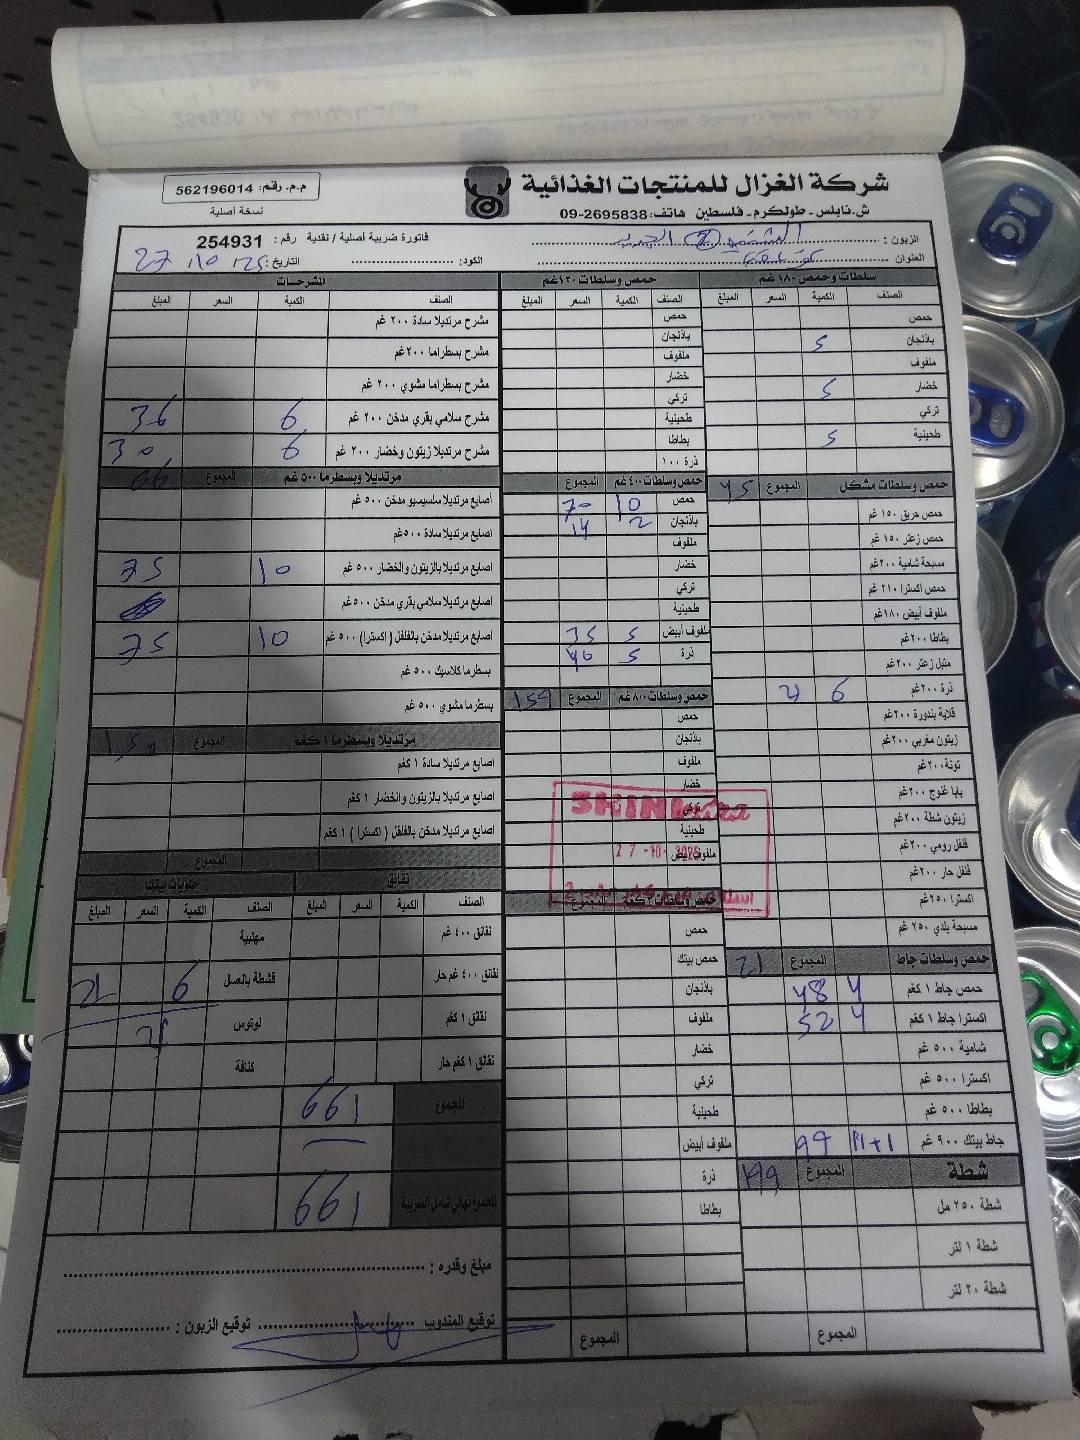 شركة الغزال للمنتجات الغذائية
م.م. رقم: 562196014
ش.نابلس - طولكرم - فلسطين هاتف: 2695838-09
نسخة أصلية
فاتورة ضريبة أصلية / نقدية رقم: 254931
الزبون:
العنوان:
الكود:
التاريخ: 27/10/25
سلطات وحمص ١٨٠ غم
الصنف الكمية السعر المبلغ
حمص
باذنجان 5
ملفوف
خضار 5
تركي
طحينية 5
حمص وسلطات مشكل المجموع 45
حمص حريق ١٥٠ غم
حمص زعتر ١٥٠ غم
مسبحة شامية ٢٠٠غم
حمص اكسترا ٢١٠ غم
ملفوف أبيض ١٨٠غم
بطاطا ٢٠٠غم
متبل زعتر ٢٠٠غم
ذرة ٢٠٠غم 6 21
قلاية بندورة ٢٠٠غم
زيتون مغربي ٢٠٠غم
تونة ٢٠٠غم
بابا غنوج ٢٠٠غم
زيتون شطة ٢٠٠غم
فلفل رومي ٢٠٠غم
فلفل حار ٢٠٠غم
اكسترا ٢٥٠غم
مسبحة بلدي ٢٥٠ غم
حمص وسلطات جاط المجموع 21
حمص جاط ١ كغم 4 48
اكسترا جاط ١ كغم 4 52
شامية ٥٠٠ غم
اكسترا ٥٠٠ غم
بطاطا ٥٠٠ غم
جاط بيتك ٩٠٠ غم 11+1 99
شطة المجموع 199
شطة ٢٥٠ مل
شطة ١ لتر
شطة ٢٠ لتر
المجموع
حمص وسلطات ١٢٠غم
الصنف الكمية السعر المبلغ
حمص
باذنجان
ملفوف
خضار
تركي
طحينية
بطاطا
ذرة ١٠٠
حمص وسلطات ٤٠٠ غم المجموع
حمص 10 70
باذنجان 2 14
ملفوف
خضار
تركي
طحينية
ملفوف أبيض 5 35
ذرة 5 40
حمص وسلطات ٨٠٠ غم المجموع 159
حمص
باذنجان
ملفوف
خضار
تركي
طحينية
ملفوف أبيض
27-10-2025
المجموع
حمص
حمص بيتك
باذنجان
ملفوف
خضار
تركي
طحينية
ملفوف أبيض
ذرة
بطاطا
المجموع
المشرحات
الصنف الكمية السعر المبلغ
مشرح مرتديلا سادة ٢٠٠ غم
مشرح بسطراما ٢٠٠غم
مشرح بسطراما مشوي ٢٠٠ غم
مشرح سلامي بقري مدخن ٢٠٠ غم 6 36
مشرح مرتديلا زيتون وخضار ٢٠٠ غم 6 30
مرتديلا وبسطرما ٥٠٠ غم المجموع 66
أصابع مرتديلا سلسيسيو مدخن ٥٠٠ غم
أصابع مرتديلا سادة ٥٠٠غم
أصابع مرتديلا بالزيتون والخضار ٥٠٠ غم 10 75
أصابع مرتديلا سلامي بقري مدخن ٥٠٠غم
أصابع مرتديلا مدخن بالفلفل (اكسترا) ٥٠٠ غم 10 75
بسطرما كلاسيك ٥٠٠ غم
بسطرما مشوي ٥٠٠ غم
مرتديلا وبسطرما ١ كغم المجموع 150
أصابع مرتديلا سادة ١ كغم
أصابع مرتديلا بالزيتون والخضار ١ كغم
أصابع مرتديلا مدخن بالفلفل (اكسترا) ١ كغم
المجموع
نقانق
الصنف الكمية السعر المبلغ
نقانق ٤٠٠ غم
نقانق ٤٠٠ غم حار
نقانق ١ كغم
نقانق ١ كغم حار
حلويات بيتك
الصنف الكمية السعر المبلغ
مهلبية
قشطة بالعسل 6 21
لوتوس 21
كنافة
المجموع 661
المجموع نهائي شامل الضريبة 661
مبلغ وقدره:
توقيع المندوب توقيع الزبون: